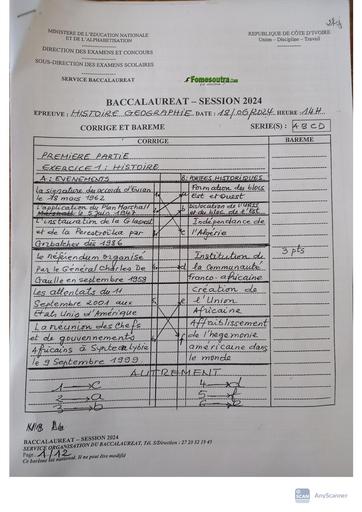 MINISTERE DE L'EDUCATION NATIONALE
ET DE L'ALPHABETISATION
REPUBLIQUE DE CÔTE D'IVOIRE
Union – Discipline – Travail
DIRECTION DES EXAMENS ET CONCOURS
SOUS-DIRECTION DES EXAMENS SCOLAIRES
SERVICE BACCALAUREAT
Fomesoutra.com
BACCALAUREAT – SESSION 2024
EPREUVE : HISTOIRE GEOGRAPHIE. DATE : 18/06/2024. HEURE : 14H..
CORRIGE ET BAREME
SERIE(S) : A B C D
CORRIGE
BAREME
PREMIERE PARTIE
EXERCICE 1 : HISTOIRE
A : EVENEMENTS
B : PORTEES HISTORIQUES
la signature des accords d'Evian
le 18 mars 1962
Formation du blocs
Est et Ouest
L'application du Plan Marshall
le 5 juin 1947
Dislocation de l'URSS
et du bloc de l'Est
L'instauration de la Glasnost
et de la Perestroïka par
Gorbatchev dès 1986
Indépendance de
l'Algérie
Le référendum organisé
Par le Général Charles De
Gaulle en septembre 1958
Institution de
la Communauté
Franco-africaine
3 pts
Les attentats du 11
Septembre 2001 aux
Etats Unis d'Amérique
Création de
l'Union
Africaine
La réunion des Chefs
et de gouvernements
Africains à Syrte en Lybie
le 9 Septembre 1999
Affaiblissement
de l'hégemonie
américaine dans
le monde
AUTREMENT
1 → c
4 → d
2 → a
5 → f
3 → b
6 → e
BACCALAUREAT – SESSION 2024
SERVICE ORGANISATION DU BACCALAUREAT, Tél. S/Direction : 27 20 32 19 45
Page 1/12
Ce barème est national. Il ne peut être modifié
SCAN
AnyScanner